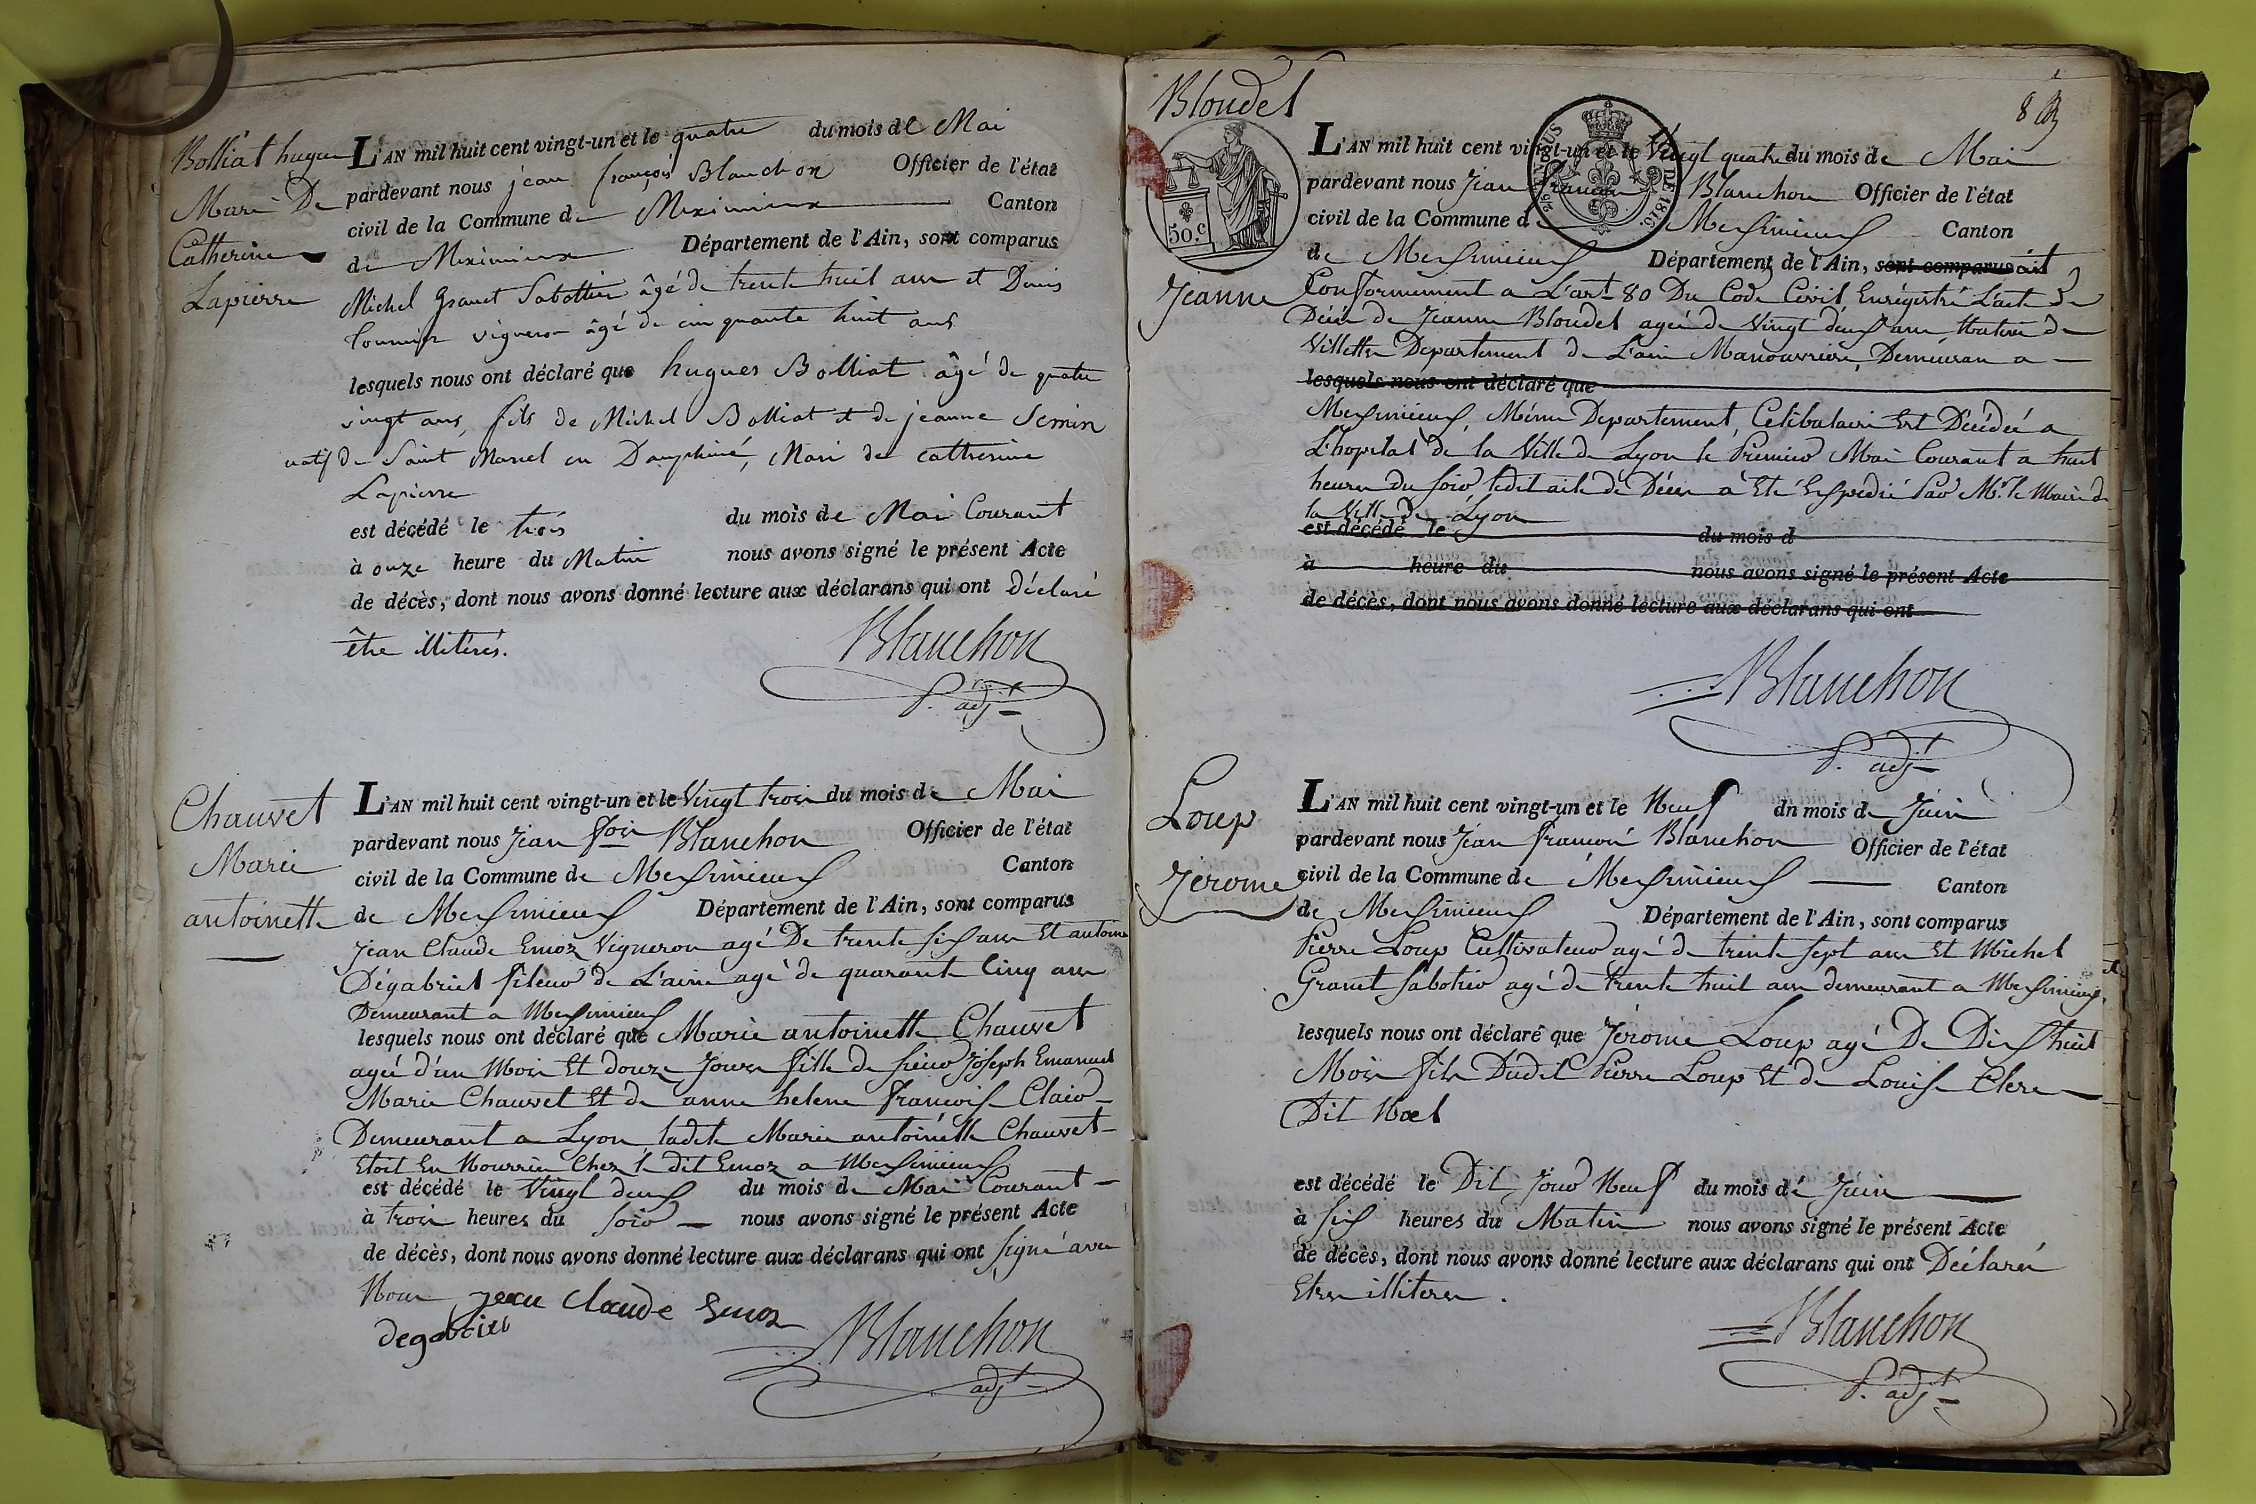 Bolliat hugue
Mari De
Catherine
Lapierre
L'AN mil huit cent vingt-un et le quatre du mois de Mai
pardevant nous jean françois Blanchon Officier de l'état
civil de la Commune de Meximieux Canton
de Meximieux Département de l'Ain, sont comparus
Michel Granet Sabottier âgé de trente huit ans et Denis
vigneron âgé de cinquante huit ans
lesquels nous ont déclaré que hugues Bolliat âgé de quatre
vingt ans, fils de Michel Bolliat et de jeanne Semin
natif de Saint Marcel en Dauphiné, Mari de catherine
Lapierre
est décédé le trois du mois de Mai Courant
à onze heure du Matin nous avons signé le présent Acte
de décès, dont nous avons donné lecture aux déclarans qui ont déclaré
être illitérés.
Blanchon
P. adjt
Chauvet
Marie
antoinette
L'AN mil huit cent vingt-un et le Vingt trois du mois de Mai
pardevant nous Jean fois Blanchon Officier de l'état
civil de la Commune de Mexsimieux Canton
de Mexsimieux Département de l'Ain, sont comparus
Jean Claude Emoz Vigneron agé De trente six ans Et antoine
Dégabriel fileur de Laine agé de quarante Cinq ans
Demeurant a Mexsimieux
lesquels nous ont déclaré que Marie antoinette Chauvet
ageé d'un Mois Et douze Jours fille de sieur Joseph Emanuel
Marie Chauvet Et de anne helene francoise Clair
Demeurant a Lyon ladite Marie antoinette Chauvet
Etoit En Nourrice Chez le dit Emoz a Mexsimieux
est décédé le Vingt deux du mois de Mai Courant
à trois heures du soir nous avons signé le présent Acte
de décès, dont nous avons donné lecture aux déclarans qui ont signé avec
Nous jean claude Emoz
degabriel
Blanchon
adjt
Bloudel
8
50.c
DE 1816.
Jeanne
L'AN mil huit cent vingt-un et le Vingt quatre du mois de Mai
pardevant nous Jean francois Blanchon Officier de l'état
civil de la Commune d Mexsimieux Canton
de Mexsimieux Département de l'Ain, sont comparus
Conformement a L'art 80 Du Code Civil Enregistré L'acte de
Décès de Jeanne Bloudel ageé de Vingt deux ans Native de
Villette Departement de L'ain Manouvriere, Demeuran a
lesquels nous ont déclaré que
Mexsimieux, Même Departement, Celibataire Est Décédée a
L'hopital de la Ville de Lyon le Premier Mai Courant a huit
heures du soir, ledit acte de Décès a Eté Expedié Par Mr. le Maire de
la Ville de Lyon
est décédé le du mois d
à heure du nous avons signé le présent Acte
de décès, dont nous avons donné lecture aux déclarans qui ont
Blanchon
P. adjt
Loup
Jerome
L'AN mil huit cent vingt-un et le Neuf dn mois de Juin
pardevant nous Jean francois Blanchon Officier de l'état
civil de la Commune de Mexsimieux Canton
de Mexsimieux Département de l'Ain, sont comparus
Pierre Loup Cultivateur agé de trente sept ans Et Michel
Granet sabotier agé de trente huit ans demeurant a Mexsimieux
lesquels nous ont déclaré que Jérome Loup agé De Dix huit
Mois fils Dudit Pierre Loup Et de Louise Clere
Dit Noel
est décédé le Dit Jour Neuf du mois de Juin
à six heures du Matin nous avons signé le présent Acte
de décès, dont nous avons donné lecture aux déclarans qui ont Déclaré
Etre illiteres.
Blanchon
P. adjt